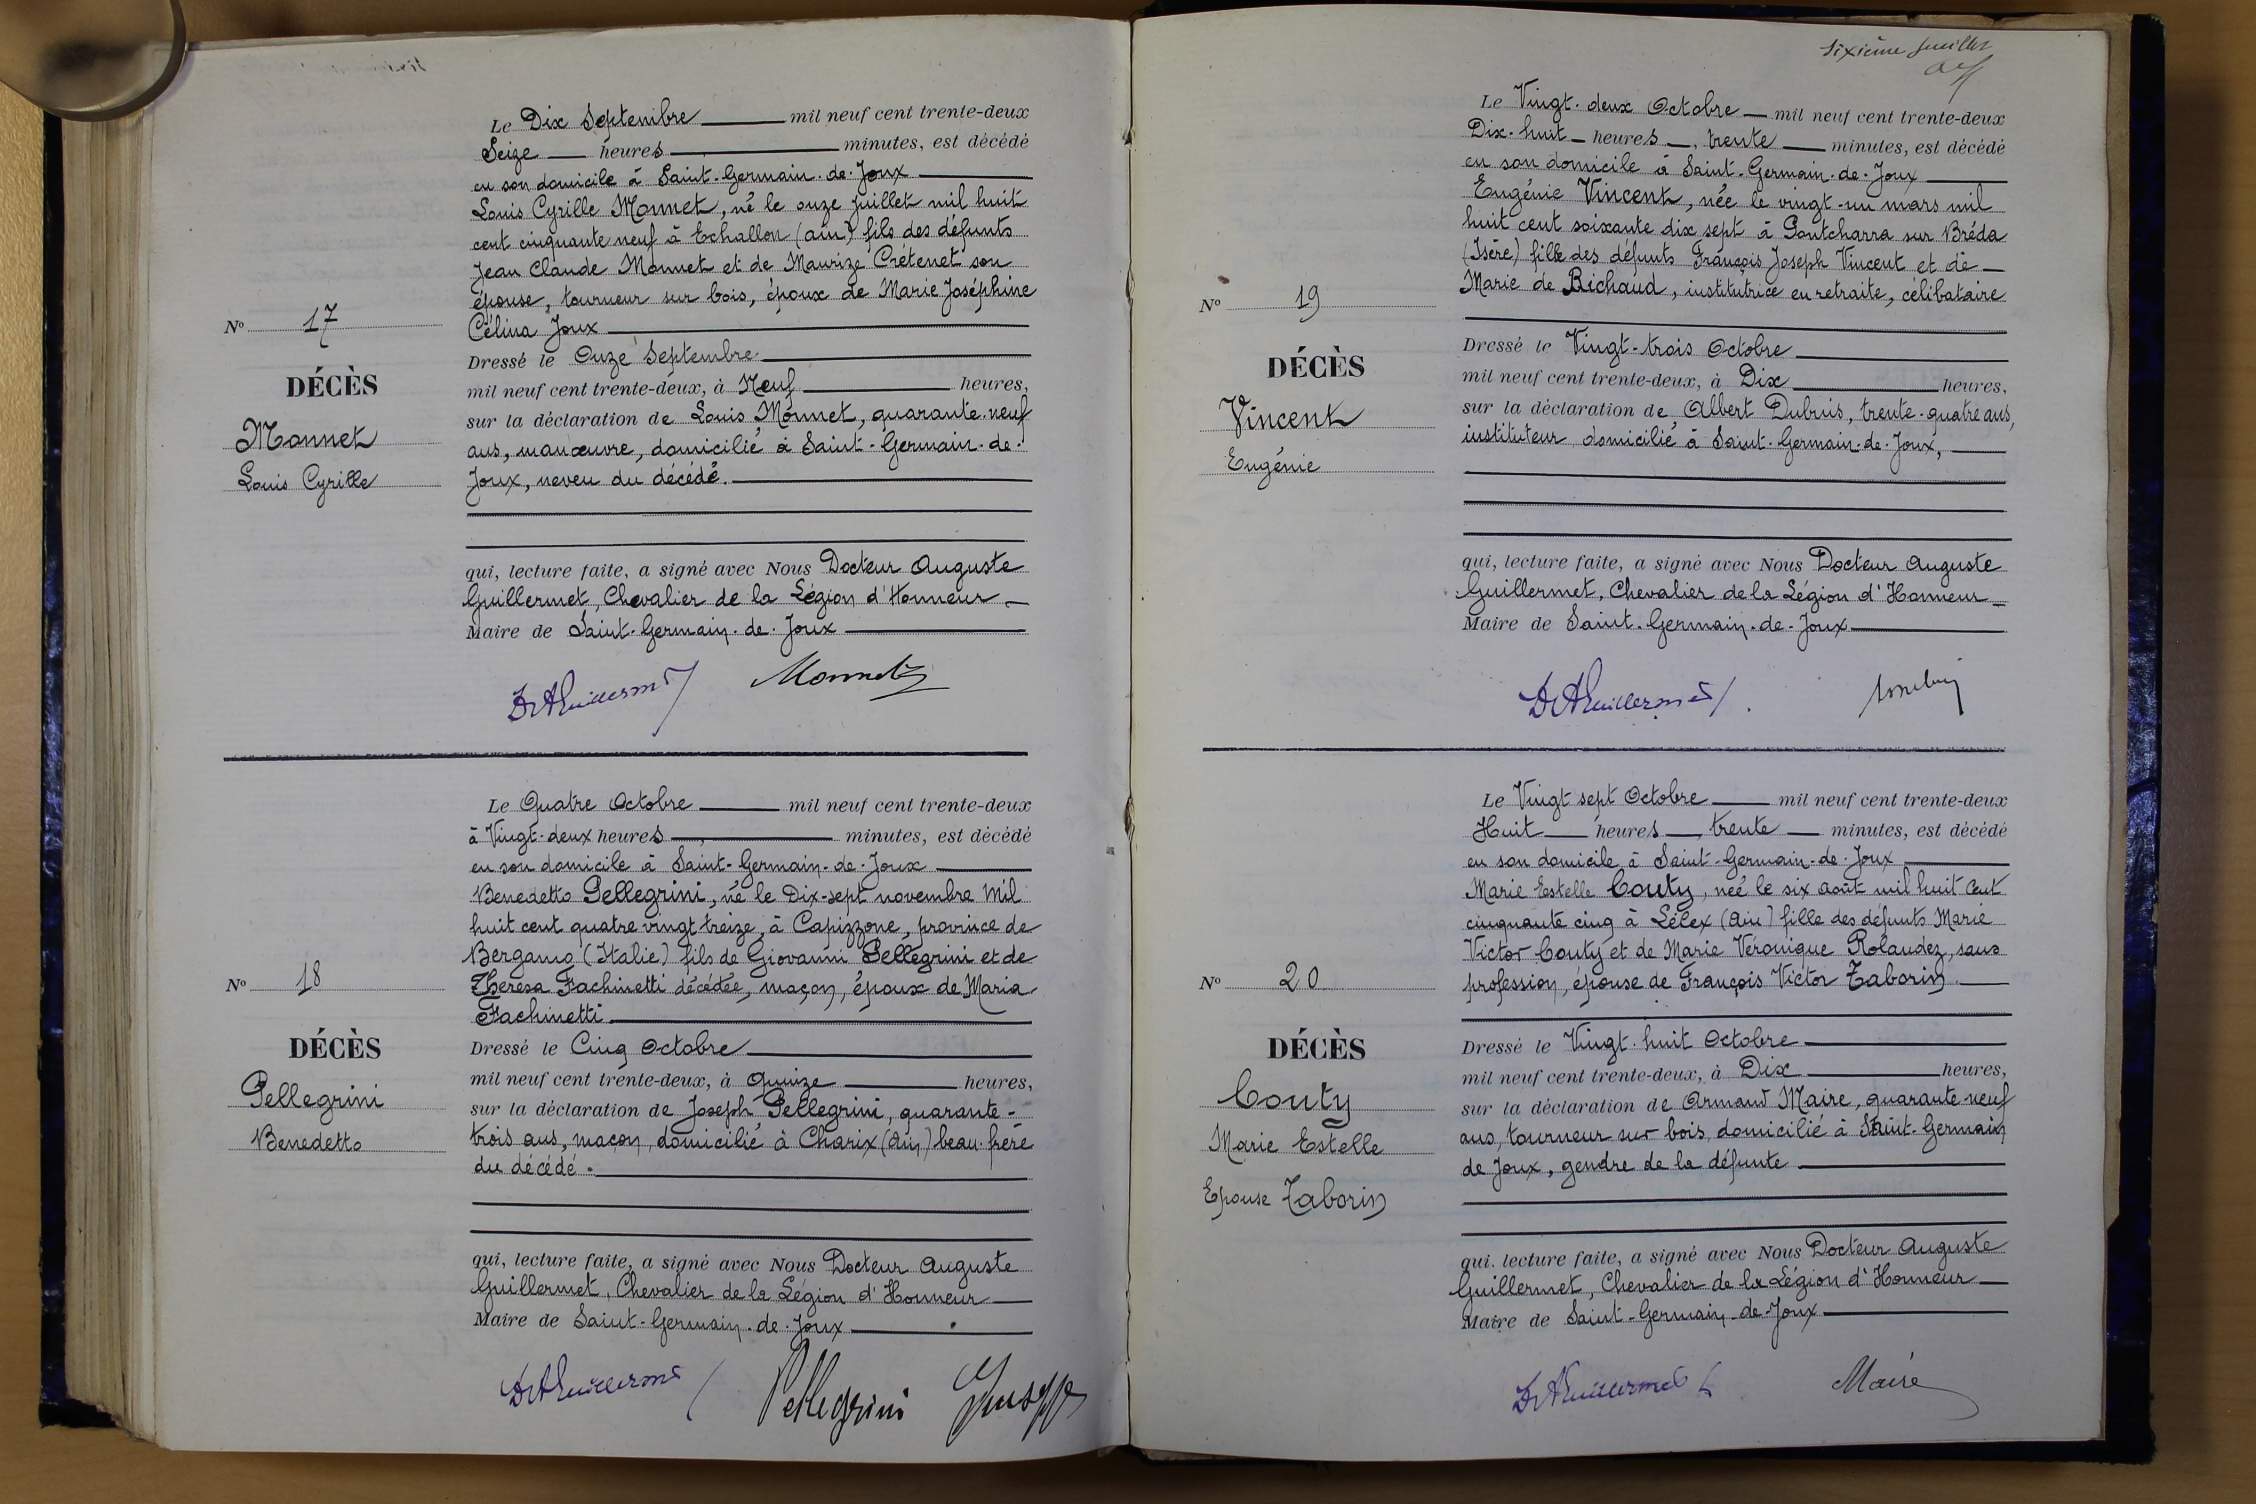 Le Dix Septembre mil neuf cent trente-deux
Seize heures minutes, est décédé
en son domicile à Saint-Germain-de-Joux
Louis Cyrille Monnet, né le onze juillet mil huit
cent cinquante neuf à Echallon (ain) fils des défunts
Jean Claude Monnet et de Maurize Crétenet son
épouse, tourneur sur bois, époux de Marie Joséphine
Célina Joux
Nº 17
DÉCÈS
Monnet
Louis Cyrille
Dressé le Onze Septembre
mil neuf cent trente-deux, à Neuf heures,
sur la déclaration de Louis Monnet, quarante-neuf
ans, manœuvre, domicilié à Saint-Germain-de-
Joux, neveu du décédé.
qui, lecture faite, a signé avec Nous Docteur Auguste
Guillermet, Chevalier de la Légion d'Honneur
Maire de Saint-Germain-de-Joux
Dr AGuillermet Monnet
Le Quatre Octobre mil neuf cent trente-deux
à Vingt-deux heures minutes, est décédé
en son domicile à Saint-Germain-de-Joux
Benedetto Pellegrini, né le Dix-sept novembre mil
huit cent quatre vingt treize, à Capizzone, province de
Bergamo (Italie) fils de Giovanni Pellegrini et de
Theresa Fachinetti décédée, maçon, époux de Maria
Fachinetti
Nº 18
DÉCÈS
Pellegrini
Benedetto
Dressé le Cinq Octobre
mil neuf cent trente-deux, à Quinze heures,
sur la déclaration de Joseph Pellegrini, quarante-
trois ans, maçon, domicilié à Charix (Ain) beau-frère
du décédé.
qui, lecture faite, a signé avec Nous Docteur Auguste
Guillermet, Chevalier de la Légion d'Honneur
Maire de Saint-Germain-de-Joux
Dr AGuillermet Pellegrini Giuseppe
Sixième feuillet
Le Vingt-deux Octobre mil neuf cent trente-deux
Dix-huit heures, trente minutes, est décédé
en son domicile à Saint-Germain-de-Joux
Eugénie Vincent, née le vingt-un mars mil
huit cent soixante dix sept à Pontcharra sur Bréda
(Isère) fille des défunts François Joseph Vincent et de
Marie de Richaud, institutrice en retraite, célibataire
Nº 19
DÉCÈS
Vincent
Eugénie
Dressé le Vingt-trois Octobre
mil neuf cent trente-deux, à Dix heures,
sur la déclaration de Albert Dubuis, trente-quatre ans,
instituteur domicilié à Saint-Germain-de-Joux,
qui, lecture faite, a signé avec Nous Docteur Auguste
Guillermet, Chevalier de la Légion d'Honneur
Maire de Saint-Germain-de-Joux
Dr AGuillermet
Le Vingt sept Octobre mil neuf cent trente-deux
Huit heures, trente minutes, est décédé
en son domicile à Saint-Germain-de-Joux
Marie Estelle Couty, née le six août mil huit cent
cinquante cinq à Lélex (Ain) fille des défunts Marie
Victor Couty et de Marie Véronique Rolandez, sans
profession, épouse de François Victor Taborin
Nº 20
DÉCÈS
Couty
Marie Estelle
Epouse Taborin
Dressé le Vingt-huit Octobre
mil neuf cent trente-deux, à Dix heures,
sur la déclaration de Armand Maire, quarante-neuf
ans, tourneur sur bois domicilié à Saint-Germain
de Joux, gendre de la défunte
qui, lecture faite, a signé avec Nous Docteur Auguste
Guillermet, Chevalier de la Légion d'Honneur
Maire de Saint-Germain-de-Joux
Dr AGuillermet Maire